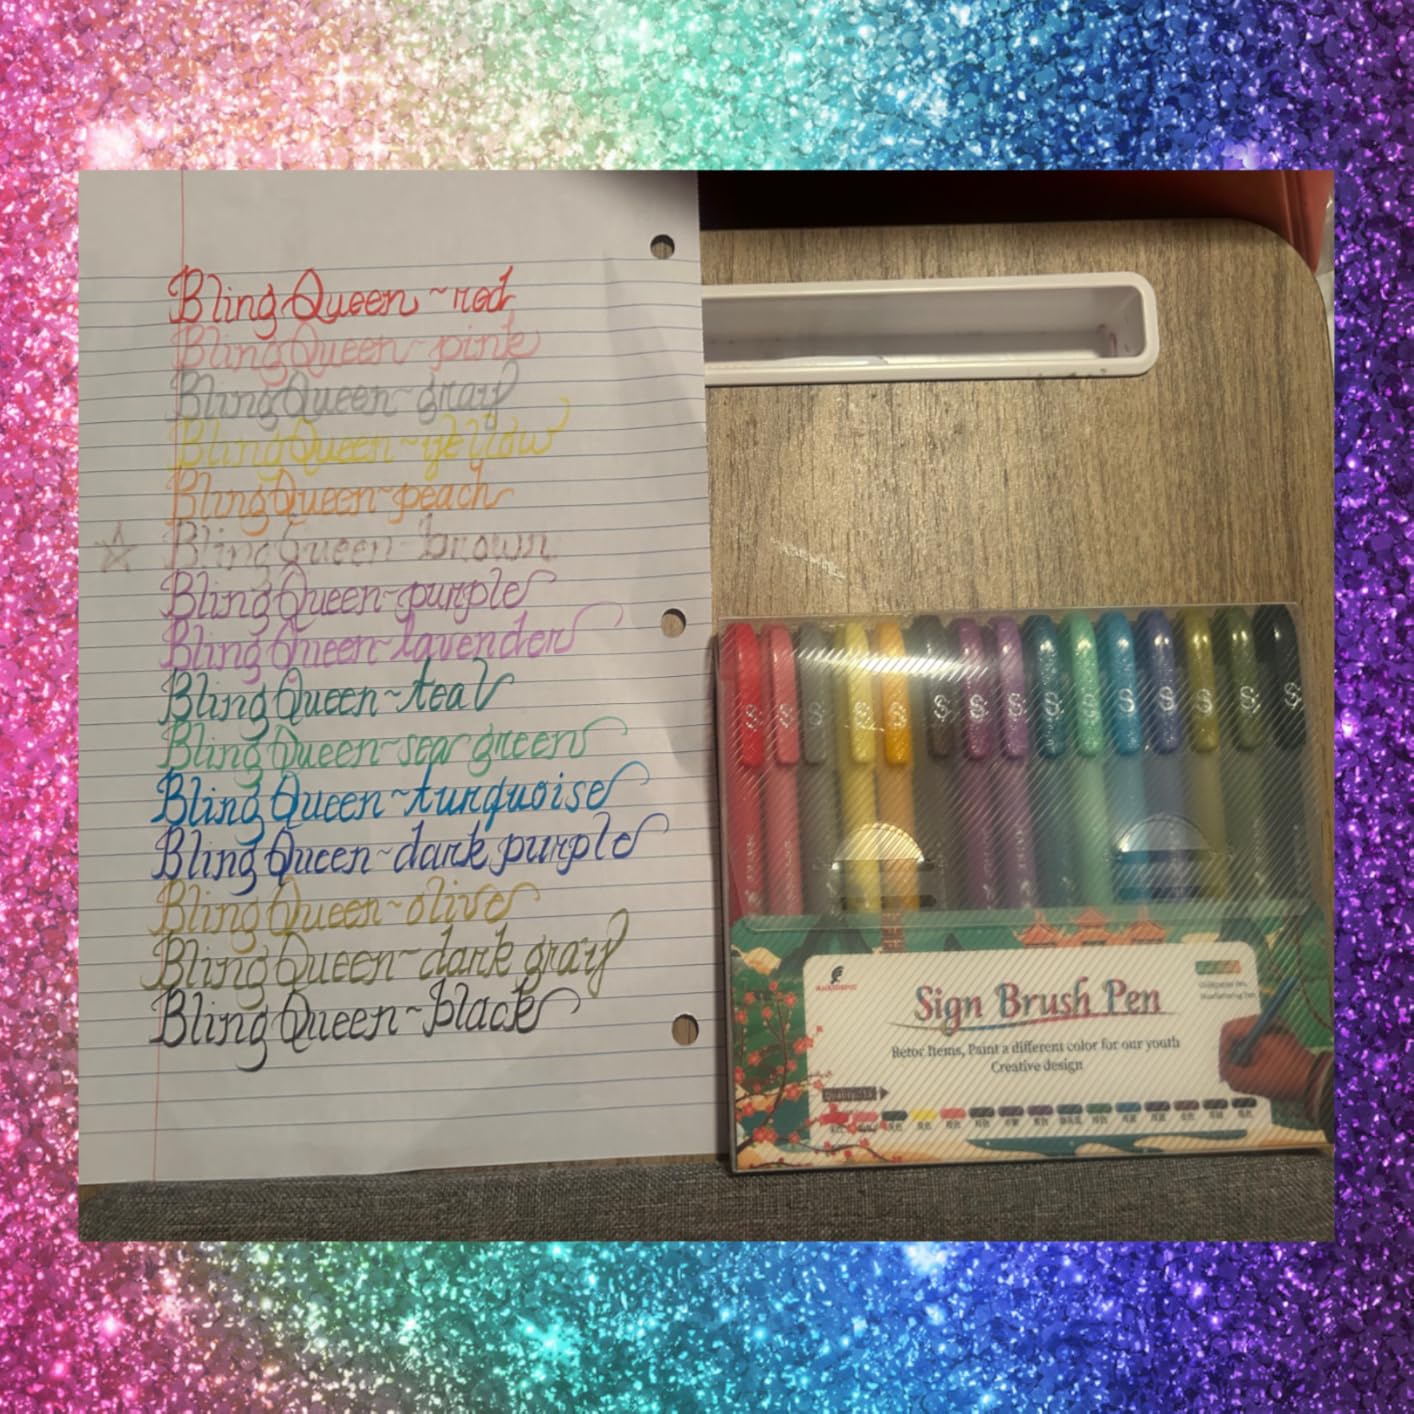 Bling Queen ~ red
Bling Queen ~ pink
Bling Queen ~ gray
Bling Queen ~ yellow
Bling Queen ~ peach
Bling Queen ~ brown
Bling Queen ~ purple
Bling Queen ~ lavender
Bling Queen ~ teal
Bling Queen ~ sea green
Bling Queen ~ turquoise
Bling Queen ~ dark purple
Bling Queen ~ olive
Bling Queen ~ dark gray
Bling Queen ~ black
Sign Brush Pen
Retor Items, Paint a different color for our youth
Creative design